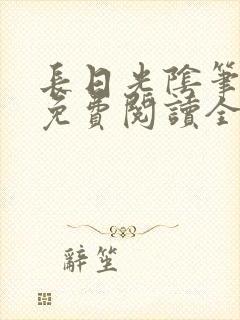 長日光陰筆
免費閱讀全
辭笙